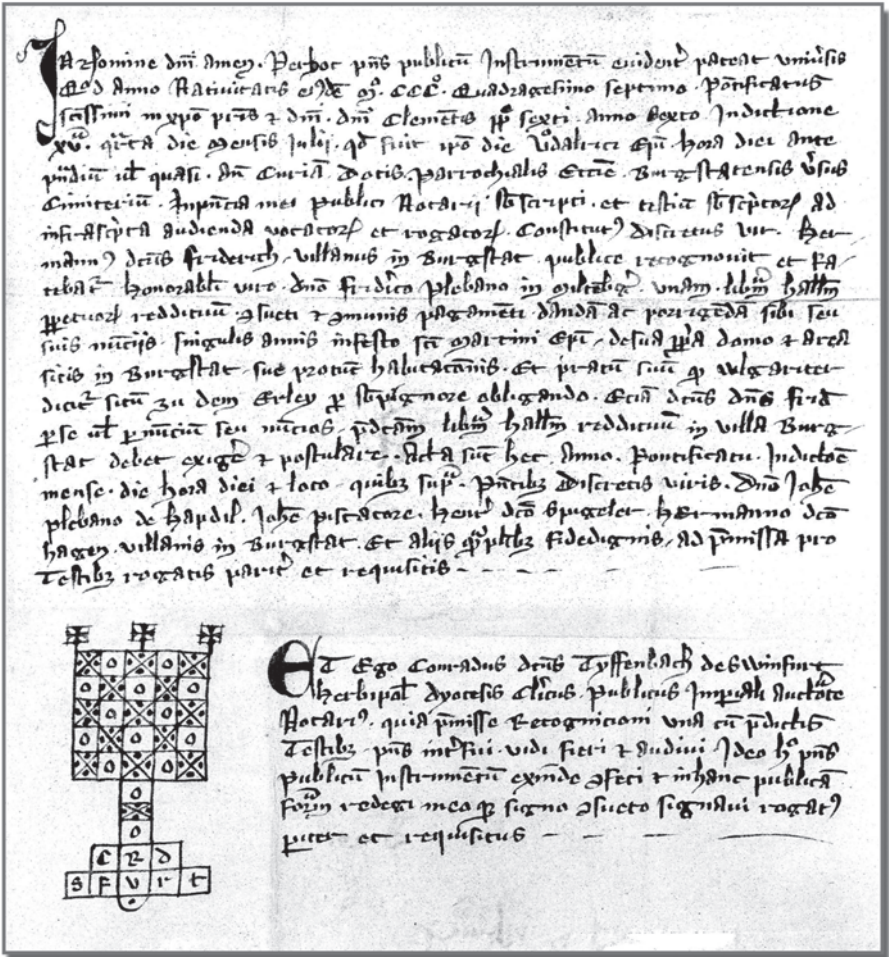 In nomine dm̄ amen. Per hoc pn̄s publicū Instrumentū evident̓ pateat vniu̓sis
Qd̓ anno Natiuitatis eiꝰdē Mº. CCCº. Quadragesimo septimo. Pōtificatus
scīssimi in xpō pr̄is ⁊ dn̄i. dn̄i Clementis pp̄ sexti. Anno sexto Indictione
xvª. qr̄ta die Mensis Julij. qd̓ fuit ip̄o die Vͦdalrici Ep̄i. hora diei ante
pn̄diū ul̓ quasi. an̄ Curiā Dotis. Parrochialis Ecc̄ie. Burgstatensis v̓sus
Cimiteriū. In pn̄cia mei Publici Notarij sb̄scripti. et testiū sb̄sc̓ptoꝝ ad
infrasc̓pta audienda vocatoꝝ et rogatoꝝ. Constitutꝰ Discretus vir. Her
mannꝰ dc̄us Friderich. villanus in Burgstat. publice recognouit et Fa
tebat᷑. honorabli̓ viro. dn̄o Frid̓ico Plebano in Miltēbg̓. vnam. libr̄m hall̄m
ꝑpetuoꝝ reddituū. ꝯsueti et ꝯmunis pagamēti. dandā ac porrigēdā sibi seu
suis nūcijs. singulis annis in festo sct̄i Martini Ep̄i. de sua ꝓpa domo ⁊ area
sitis in Burgstat. sue protūc habitac̄onis. Et pratum suū qd̓ wlgariter
dicit᷑ situ zu dem Erley ꝑ sb̄pignore obligando. Eciā dc̄us dn̄s Frid̓
ꝑ se ul̓ ꝑ nūciū seu nūcios. p̄dc̄am libr̄m hall̄m reddituū in villa Burg
stat debet exige̓ ⁊ postulare. Acta sūt hec. Anno. Pontificatu. Indictōe
mense. die hora diei ⁊ loco. quibꝫ supª. Pn̄tibꝫ Discretis viris. Dn̄o Joh̄e
plebano de Hardil. Joh̄e Piscatore. Henr̓ dc̄o Spugeler. Hermanno dc̄o
hagen. villanis in Burgstat. Et alijs qª̓plibꝫ fidedignis. ad p̄missa pro
Testibꝫ rogatis parit̓ et requisitis
Et Ego Conradus dc̄us Tyffenbach de Swinfurt
herbipol̓ dyocesis Cl̓icus. Publicus Imperiali auctōte
Notariꝰ. quia p̄misse Recognicioni vna cū p̄dictis
Testibꝫ. pn̄s int̓fui. vidi fieri ⁊ audiui. Ideo hº pn̄s
publicū Instrumentū exinde ꝯfeci ⁊ in hanc publicā
formª redegi meo qꝫ signo ꝯsueto signaui rogatꝰ
pariter et requisitus
C R D
S F V R T